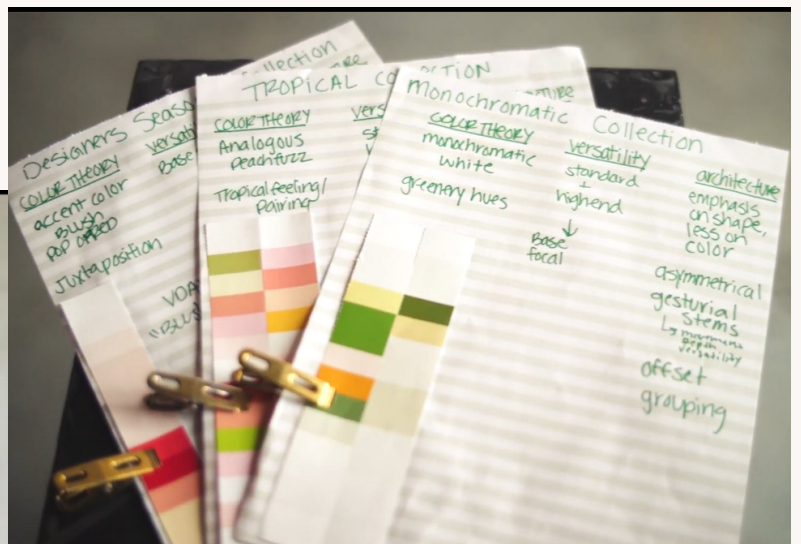 Designers Seaso
llection
COLOR THEORY
accent color
Blush
POP OF RED
Juxtaposition
versati
Base
VOA
"BLU
TROPICAL CO
CTION
COLOR THEORY
Analogous
Peachfuzz
Tropical feeling/
Pairing
vers
st
Monochromatic Collection
COLOR THEORY
monochromatic
white
greenery hues
versatility
standard
+
highend
↓
Base
focal
architecture
emphasis
on shape,
less on
color
asymmetrical
gesturial
stems
↳ movement
depth
versatility
offset
grouping